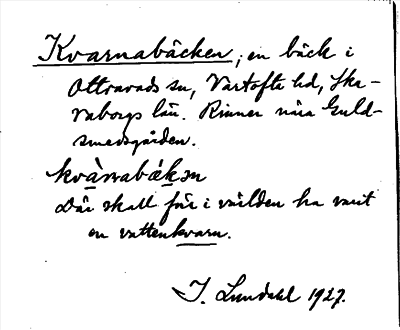 Kvarnabäcken; en bäck i
Ottravads sn, Vartofta hd, Ska-
raborgs län. Rinner nära Guld-
smedsgården.
kvà̱rnabäḵən
Där skall för i världen ha varit
en vattenkvarn.
J. Lundahl 1927.